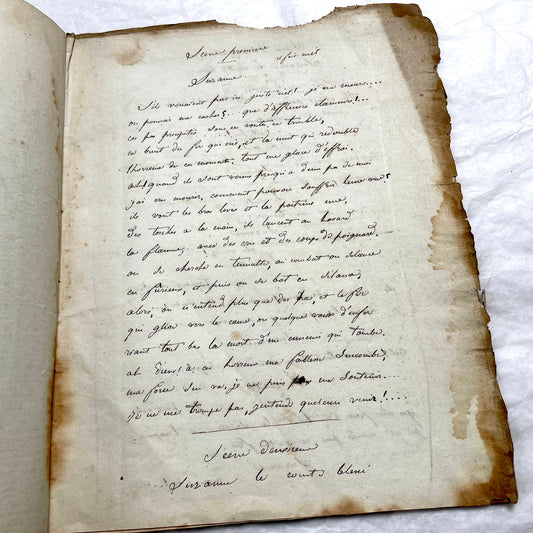 Scene premiere
Suzanne
S'ils venaient par ici juste ciel! je me meurs....
ou pouvoir me cacher? que d'affreuses clameurs!...
ces pas precipités dans ce vaste, ce trouble,
ce bruit du fer qui crie, et la nuit qui redouble
l'horreur de ces moments, tout me glace d'effroi.
ah! quand ils sont venus presqu'a deux pas de moi
j'ai cru mourir, comment pouvoir souffrir leur vue?
ils vont les bras levés et la poitrine nue,
des torches a la main, ils lancent au hasard
la flamme avec des cris et des coups de poignard.
on se cherche en tumulte, au combat on s'élance
en furieux, et puis on se bat en silence,
alors, on n'entend plus que des pas, et le fer
qui glisse vers le cœur, ou quelque voix d'enfer
vante tout bas la mort d'un ennemi qui tombe.
ah dieux! a ces horreurs ma faiblesse succombe,
ma force s'en va, je ne puis me soutenir....
je ne me trompe pas, j'entends quelqu'un venir!....
Scene deuxieme
Suzanne le comte blessé